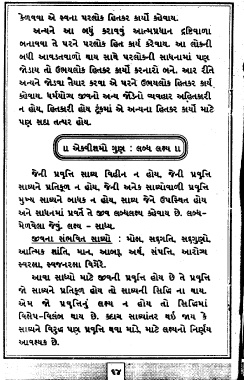 કેળવવા એ સ્વના પરલોક હિતકર કાર્યો કહેવાય.
અન્યને આ બધું કરાવવું આત્મપ્રધાન દ્રષ્ટિવાળા
બનાવવા તે પરને પરલોક હિત કાર્ય કરેવાય. આ લોકની
બધી આવડતવાળો થાય સાથે પરલોકની સાધનામાં પણ
જોડાય તો ઉભયલોક હિતકર કાર્યો કરનારો બને. આર રીતે
અન્યને જોડવા તૈયાર કરવા એ પરને ઉભયલોક હિતકર કાર્ય
કહેવાય. ધર્મયોગ્ય જીવનો અન્ય જોડેનો વ્યવહાર અહિતકારી
ન હોય, હિતકારી હોય ટૂંકમાં એ અન્યના હિતકર કાર્યો માટે
પણ સદા તત્પર હોય.
॥ એકવીસમો ગુણ : લબ્ધ લક્ષ્ય ॥
જેની પ્રવૃત્તિ સાધ્ય વિહીન ન હોય, જેની પ્રવૃત્તિ
સાધ્યને પ્રતિકૂળ ન હોય, જેની અનેક સાધ્યોવાળી પ્રવૃત્તિ
મુખ્ય સાધ્યને બાધક ન હોય, સાધ્ય જેને ઉપસ્થિત હોય
અને સાધનમાં પ્રવર્તે તે જીવ લબ્ધલક્ષ્ય કહેવાય છે. લબ્ધ-
મેળવેલા જેવું, લક્ષ્ય - સાધ્ય.
જીવના સંભવિત સાધ્યો : મોક્ષ, સદ્ગતિ, સદ્ગુણો,
આત્મિક શાંતિ, માન, આબરૂ, અર્થ, સંપત્તિ, આરોગ્ય
સ્વરક્ષા, સ્વજનરક્ષા વિગેરે.
આવા સાધ્યો માટે જીવની પ્રવૃત્તિ હોય છે તે પ્રવૃત્તિ
જો સાધ્યને પ્રતિકૂળ હોય તો સાધ્યની સિદ્ધિ ના થાય.
એમ જો પ્રવૃત્તિનું લક્ષ્ય ન હોય તો સિદ્ધિમાં
વિક્ષેપ-વિલંબ થાય છે. ક્યારેક સાધ્યાંતર થઇ જાય કે
સાધ્યને વિરુદ્ધ પણ પ્રવૃત્તિ થવા માંડે. માટે લક્ષ્યનો નિર્ણય
આવશ્યક છે.
૬૪